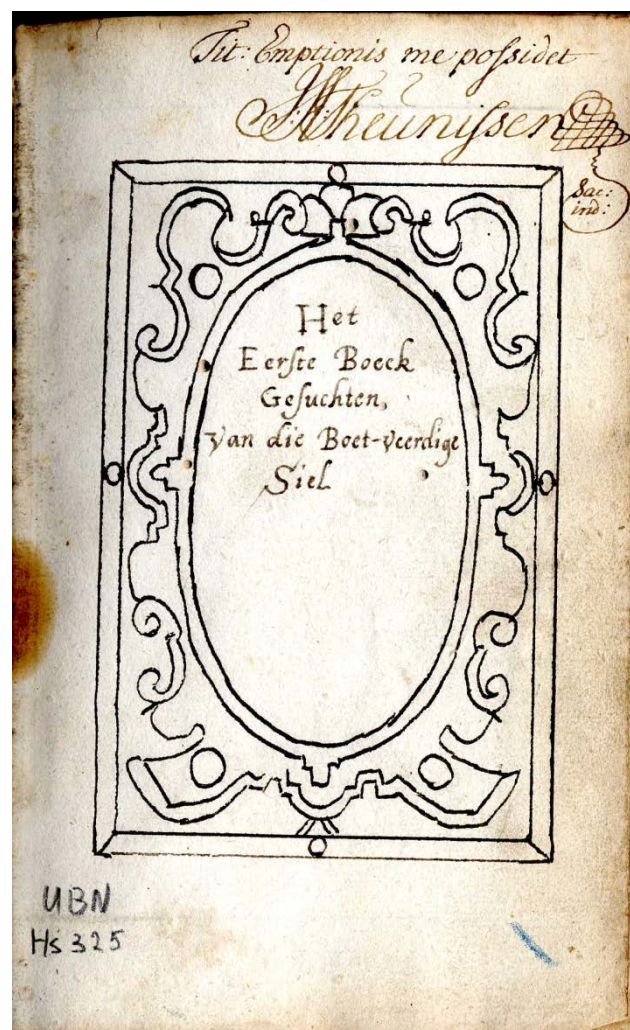 Tit: Emptionis me poſsidet
Theuniſsen
Sac:
ind:
Het
Eerſte Boeck
Geſuchten,
Van die Boet-veerdige
Siel
UBN
Hs 325